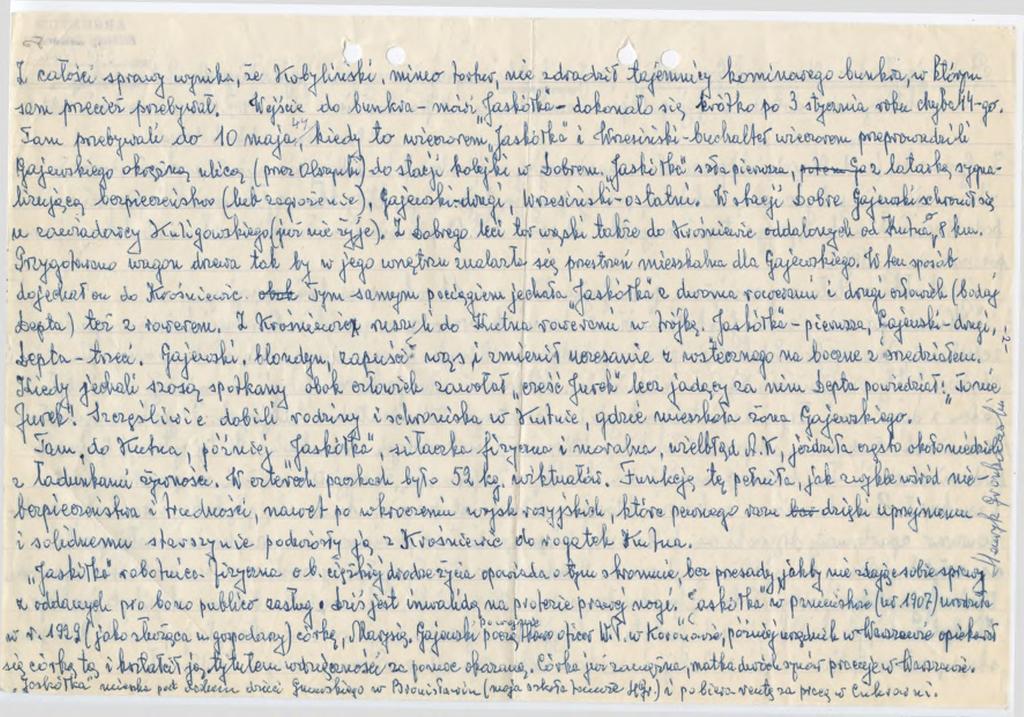 Z całości sprawy wynika, że Kobyliński, mimo tortur, nie zdradził tajemnicy kominowego bunkra, w którym
sam przecież przebywał. Wejście do bunkra – mówi „Jaskółka" – dokonało się krótko po 3 stycznia roku chyba 44-go.
Tam przebywali do 10 maja 44, kiedy to wieczorem „Jaskółka" i Wrzesiński – buchalter wieczorem przeprowadzili
Gajewskiego okrężną ulicą (przez ) do stacji kolejki w Dobrem. „Jaskółka" szła pierwsza, z latarką sygna-
lizującą bezpieczeństwo (lub zagrożenie), Gajewski – drugi, Wrzesiński – ostatni. W stacji Dobre Gajewski schronił się
u zawiadowcy Kuligowskiego (już nie żyje). Z Dobrego leci tor wąski także do Krośniewic oddalonych od Kutna 8 km.
Przygotowano wagon drzewa tak by w jego wnętrzu znalazła się przestrzeń mieszkalna dla Gajewskiego. W ten sposób
dojechał on do Krośniewic. Tym samym pociągiem jechała „Jaskółka" z dwoma rowerami i drugi człowiek (bodaj
Depta) też z rowerem. Z Krośniewic ruszyli do Kutna rowerami w trójkę. Jaskółka" – pierwsza, Gajewski – drugi,
Depta – trzeci. Gajewski, blondyn, zapuścił wąs i zmienił uczesanie z wstecznego na boczne z przedziałem.
Kiedy jechali szosą spotkany obok człowiek zawołał „cześć Jurek" lecz jadący za nim Depta powiedział: „To nie
Jurek". Szczęśliwie dobili rodziny i schroniska w Kutnie, gdzie mieszkała żona Gajewskiego.
Tam, do Kutna, później „Jaskółka", siłaczka fizyczna i moralna, wielbłąd A.K, jeździła często około niedziel
z ładunkami żywności. W czterech paczkach było 52 kg. wiktuałów. Funkcję tę pełniła, jak zwykle wśród nie-
bezpieczeństwa i trudności, nawet po wkroczeniu wojsk rosyjskich, które pewnego razu dzięki uprzejmemu
i solidnemu starszynie podwiozły ją z Krośniewic do rogatek Kutna.
„Jaskółka" robotnica fizyczna o b. ciężkiej drodze życia opowiada o tym skromnie, bez przesady, jakby nie zdając sobie sprawy
z oddanych pro bono publico zasług. Dziś jest inwalidą na protezie prawej nogi. „Jaskółka" w (ur 1907) urodziła
w r. 1929 (jako służąca u gospodarzy) córkę, Marysię. Gajewski oficer W.P. w Koronowie, później urzędnik w Warszawie opiekował
się córką tą i kształcił ją, tytułem wdzięczności za pomoc okazaną. Córka już zamężna, matka dwóch synów pracuje w Warszawie.
„Jaskółka" mieszka pod dachem dzieci w Bronisławiu (moja szkoła ) i pobiera rentę za pracę w Cukrowni.